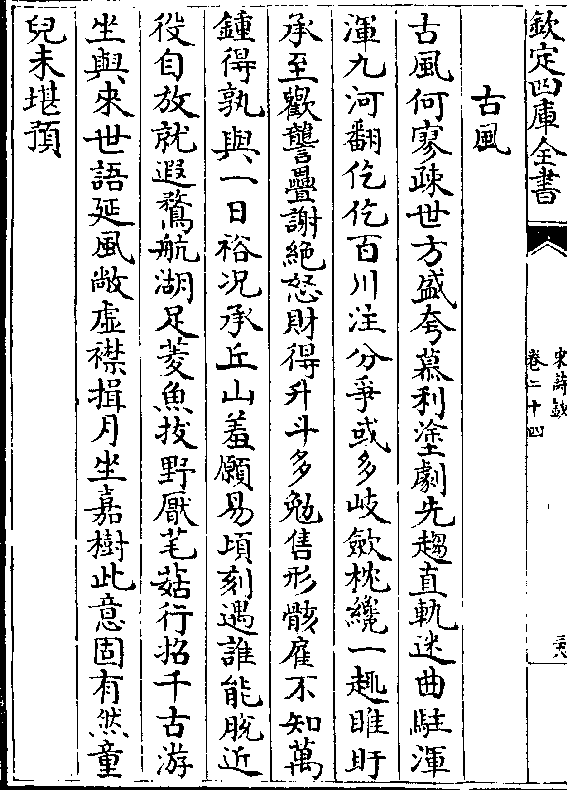 欽定四庫全書
宋詩鈔
卷二十四
古風
古風何寥疎世方盛夸慕利塗劇先趨直軌迷曲駐渾
渾九河翻仡仡百川注分爭或多岐歛枕纔一趣睢盱
承至歡讋讋疊謝絶怒財得升斗多勉售形骸雇不知萬
鍾得孰與一日裕况承丘山羞願易頃刻遇誰能脫近
役自放就遐鶩航湖足菱魚拔野厭芼菇行招千古游
坐與來世語延風敞虛襟揖月坐嘉樹此意固有然童
兒未堪預